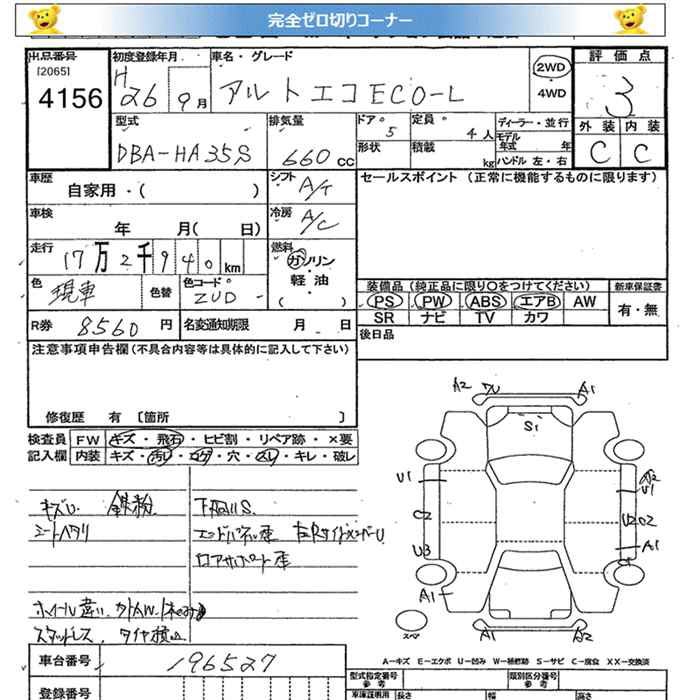 完全ゼロ切りコーナー
出品番号 初度登録年月 車名・グレード 評価点
[2065] H 2WD
4156 26 9月 アルトエコECO-L ・4WD 3
型式 排気量 ドア。 定員。 ディーラー・並行 外装 内装
DBA-HA35S 660cc 5 4人 モデル年式 年 C C
形状 積載 kg ハンドル 左・右
車歴 自家用・( ) シフト A/T セールスポイント (正常に機能するものに限ります)
車検 年 月( 日) 冷房 A/C
走行 17万2千940km 燃料 ガソリン・軽油・( )
色 現車 色替 色コード ZUD 装備品(純正品に限り○をつけてください) 新車保証書
PS PW ABS エアB AW 有・無
R券 8560円 名変通知期限 月 日 SR ナビ TV カワ
注意事項申告欄(不具合内容等は具体的に記入して下さい) 後日品
修復歴 有 [箇所 ]
検査員 FW キズ・飛石・ヒビ割・リペア跡・×要
記入欄 内装 キズ・汚レ・コゲ・穴・スレ・キレ・破レ
キズU 鉄粉 下回りS
シートヘタリ
ロアサポート歪
ホイール違い
スタッドレス
A2 A1
S1
U1 U1
C2 U2C2
U3 A1
A1 C
スペア A1 A2
A-キズ E-エクボ U-凹み W-補修跡 S-サビ C-腐食 XX-交換済
車台番号 196527 型式指定番号 参考 類別区分番号 参考
登録番号 車庫証明用 長さ 幅 高さ